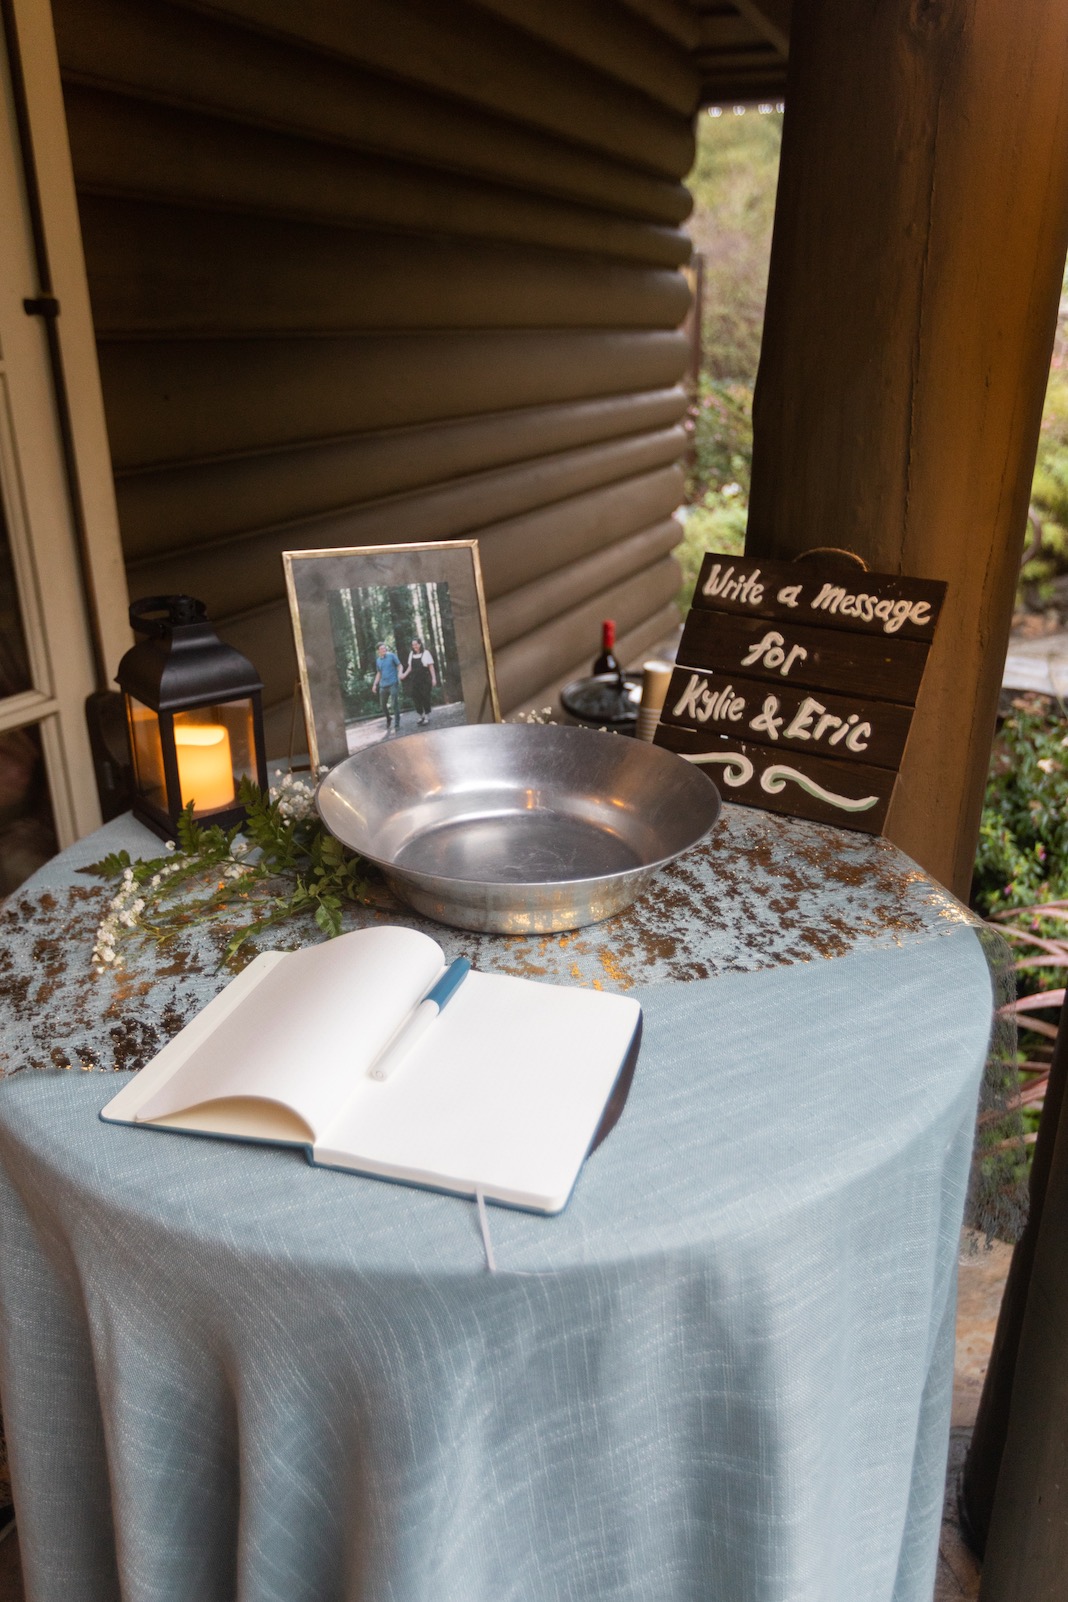 Write a message
for
Kylie & Eric